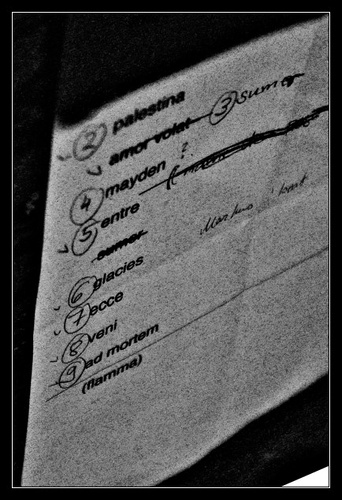 ② palestina
amor volat ③ Sumer
④ mayden ?
⑤ entre
sumer
⑥ glacies
⑦ ecce
⑧ veni
⑨ ad mortem
(flamma)